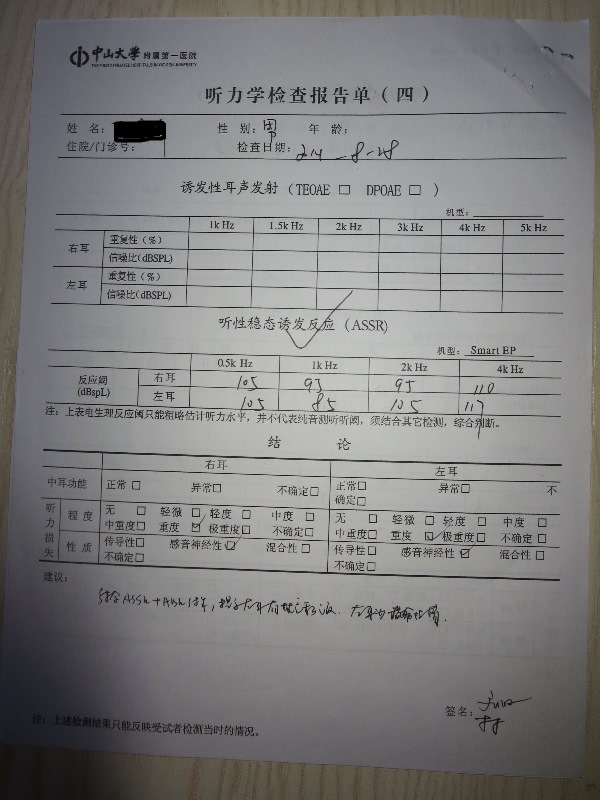 中山大學 附属第一医院
THE FIRST AFFILIATED HOSPITAL, SUN YAT-SEN UNIVERSITY
听力学检查报告单（四）
姓 名: 性 别: 男 年 龄:
住院/门诊号: 检查日期: 8-28
诱发性耳声发射（TEOAE □ DPOAE □ ）
机型:
1k Hz 1.5k Hz 2k Hz 3k Hz 4k Hz 5k Hz
右耳 重复性（%）
信噪比(dBSPL)
左耳 重复性（%）
信噪比(dBSPL)
听性稳态诱发反应（ASSR)
机型: Smart EP
0.5k Hz 1k Hz 2k Hz 4k Hz
反应阈 (dBspL) 右耳 105 95 95 110
左耳 105 85 105 117
注：上表电生理反应阈只能粗略估计听力水平，并不代表纯音测听听阈，须结合其它检测，综合判断。
结 论
右耳 左耳
中耳功能 正常 □ 异常□ 不确定□ 正常□ 异常□ 不确定□
听力损失 程 度 无 □ 轻微 □ 轻度 □ 中度 □ 无 □ 轻微 □ 轻度 □ 中度 □
中重度□ 重度 ☑ 极重度□ 不确定□ 中重度□ 重度 ☑ 极重度□ 不确定 □
性 质 传导性□ 感音神经性☑ 混合性 □ 传导性□ 感音神经性☑ 混合性 □
不确定□ 不确定□
建议:
签名:
注：上述检测结果只能反映受试者检测当时的情况。